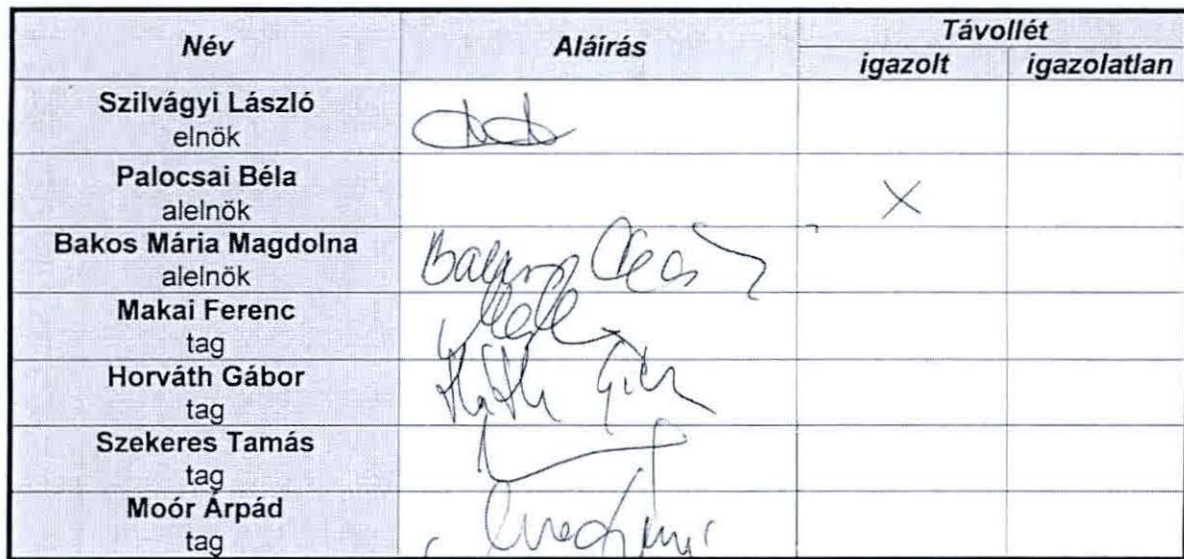 Név Aláírás Távollét
igazolt igazolatlan
Szilvágyi László
elnök
Palocsai Béla
alelnök X
Bakos Mária Magdolna
alelnök
Makai Ferenc
tag
Horváth Gábor
tag
Szekeres Tamás
tag
Moór Árpád
tag